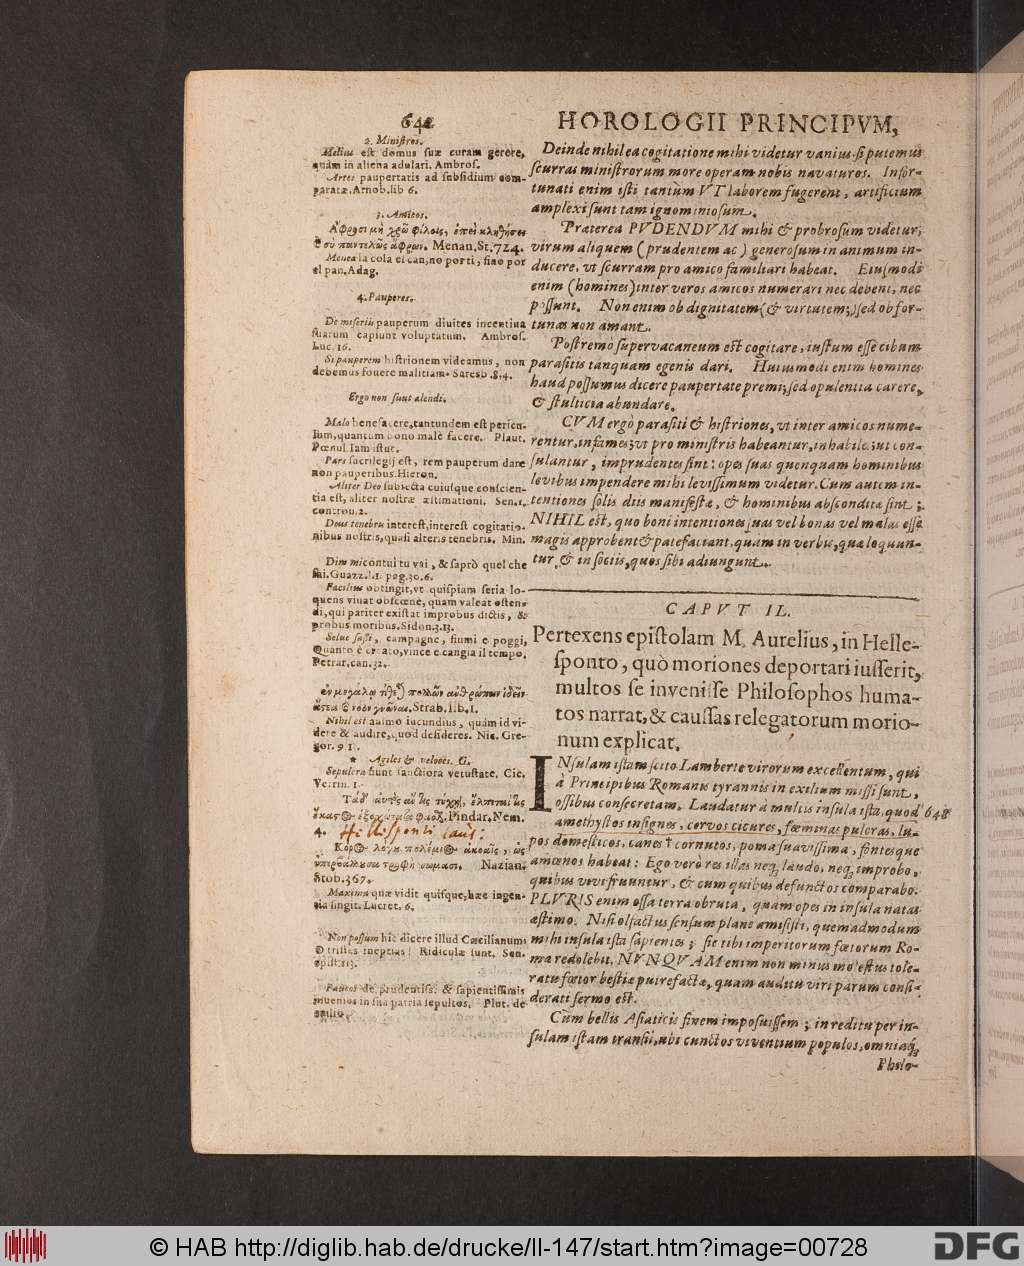 642
HOROLOGII PRINCIPVM,
2. Ministros.
Melius est domus suæ curam gerere,
quàm in aliena adulari. Ambros.
Artes paupertatis ad subsidium com-
paratæ. Arnob. lib 6.
3. Amicos.
Menan. St. 724.
el pan. Adag.
4. Pauperes.
De miseriis pauperum diuites incentiua
suarum capiunt voluptatum. Ambros.
Luc. 16.
Si pauperem histrionem videamus, non
debemus fouere malitiam. Saresb. 8. 4.
Ergo non sunt alendi.
Malo benefacere, tantundem est pericu-
lum, quantum bono malè facere. Plaut.
Pœnul. Iam istuc.
Pars sacrilegij est, rem pauperum dare
non pauperibus. Hieron.
Aliter Deo subiecta cuiusque conscien-
tia est, aliter nostræ æstimationi. Sen. 1.
controu. 2.
Deus tenebris interest, interest cogitatio-
nibus nostris, quasi alteris tenebris. Min.
Dim mi con tui tu vai, & saprò quel che
fai. Guazz. l. 1. pag. 30. 6.
Facilius obtingit, vt quispiam seria lo-
quens viuat obscœnè, quam valeat osten-
di, qui pariter existat improbus dictis, &
probus moribus. Sidon. 3. 13.
Selue sassi, campagne, fiumi e poggi,
Quanto è creato, vince e cangia il tempo.
Petrar. can. 32.
Strab. lib. 1.
Nihil est animo iucundius, quàm id vi-
dere & audire, quod desideres. Nic. Gre-
gor. 9 1.
* Agiles & veloces. G.
Sepulcra fiunt sanctiora vetustate. Cic.
Verrin. 1.
Pindar. Nem.
4. Hellisponti laus:
Nazian.
Stob. 367.
Maxima quæ vidit quisque, hæc ingen-
tia fingit. Lucret. 6.
Non possum hîc dicere illud Cæcilianum:
O tristes ineptias! Ridiculæ sunt. Sen.
epist. 113.
Paucos de prudentiss. & sapientissimis
inuenies in sua patria sepultos. Plut. de
exilio.
Deinde nihil ea cogitatione mihi videtur vanius, si putemus
scurras ministrorum more operam nobis navaturos. Infor-
tunati enim isti tantùm VT laborem fugerent, artificium
amplexi sunt tam ignominiosum.
Præterea PVDENDVM mihi & probrosum videtur,
virum aliquem (prudentem ac) generosum in animum in-
ducere, vt scurram pro amico familiari habeat. Eiusmodi
enim (homines) inter veros amicos numerari nec debent, nec
possunt. Non enim ob dignitatem (& virtutem,) sed ob for-
tunas non amant.
Postremò supervacaneum est cogitare, iustum esse cibum
parasitis tanquam egenis dari. Huiusmodi enim homines
haud possumus dicere paupertate premi; sed opulentia carere,
& stultitia abundare.
CVM ergò parasiti & histriones, vt inter amicos nume-
rentur, infames; vt pro ministris habeantur, inhabiles; ut con-
sulantur, imprudentes sint: opes suas quenquam hominibus
levibus impendere mihi levissimum videtur. Cum autem in-
tentiones solis diis manifestæ, & hominibus absconditæ sint;
NIHIL est, quo boni intentiones suas vel bonas vel malas esse
magis approbent & patefaciant, quam in verbis, quæ loquun-
tur, & in sociis, quos sibi adiungunt.
CAPVT II.
Pertexens epistolam M. Aurelius, in Helle-
sponto, quò moriones deportari iusserit,
multos se invenisse Philosophos huma-
tos narrat, & caussas relegatorum morio-
num explicat.
INsulam istam scito Lamberte virorum excellentum, qui
à Principibus Romanis tyrannis in exilium missi sunt,
ossibus consecratam. Laudatur à multis insula ista, quod 648
amethystos insignes, cervos cicures, fœminas pulcras, lu-
pos domesticos, canes † cornutos, poma suavissima, fontesque
amœnos habeat: Ego verò res illas neq; laudo, neq; improbo,
quibus vivi fruuntur, & cum quibus defunctos comparabo.
PLVRIS enim ossa terra obruta, quam opes in insula natas
æstimo. Nisi olfactus sensum plane amisisti, quemadmodum
mihi insula ista sapientes; sic tibi imperitorum fœtorum Ro-
ma redolebit. NVNQVAM enim non minus molestus tole-
ratu fœtor bestiæ putrefactæ, quam auditu viri parum consi-
derati sermo est.
Cùm bellis Asiaticis finem imposuissem; in reditu per in-
sulam istam transii, ubi cunctos viventium populos, omniaq;
Philo-
© HAB http://diglib.hab.de/drucke/ll-147/start.htm?image=00728
DFG